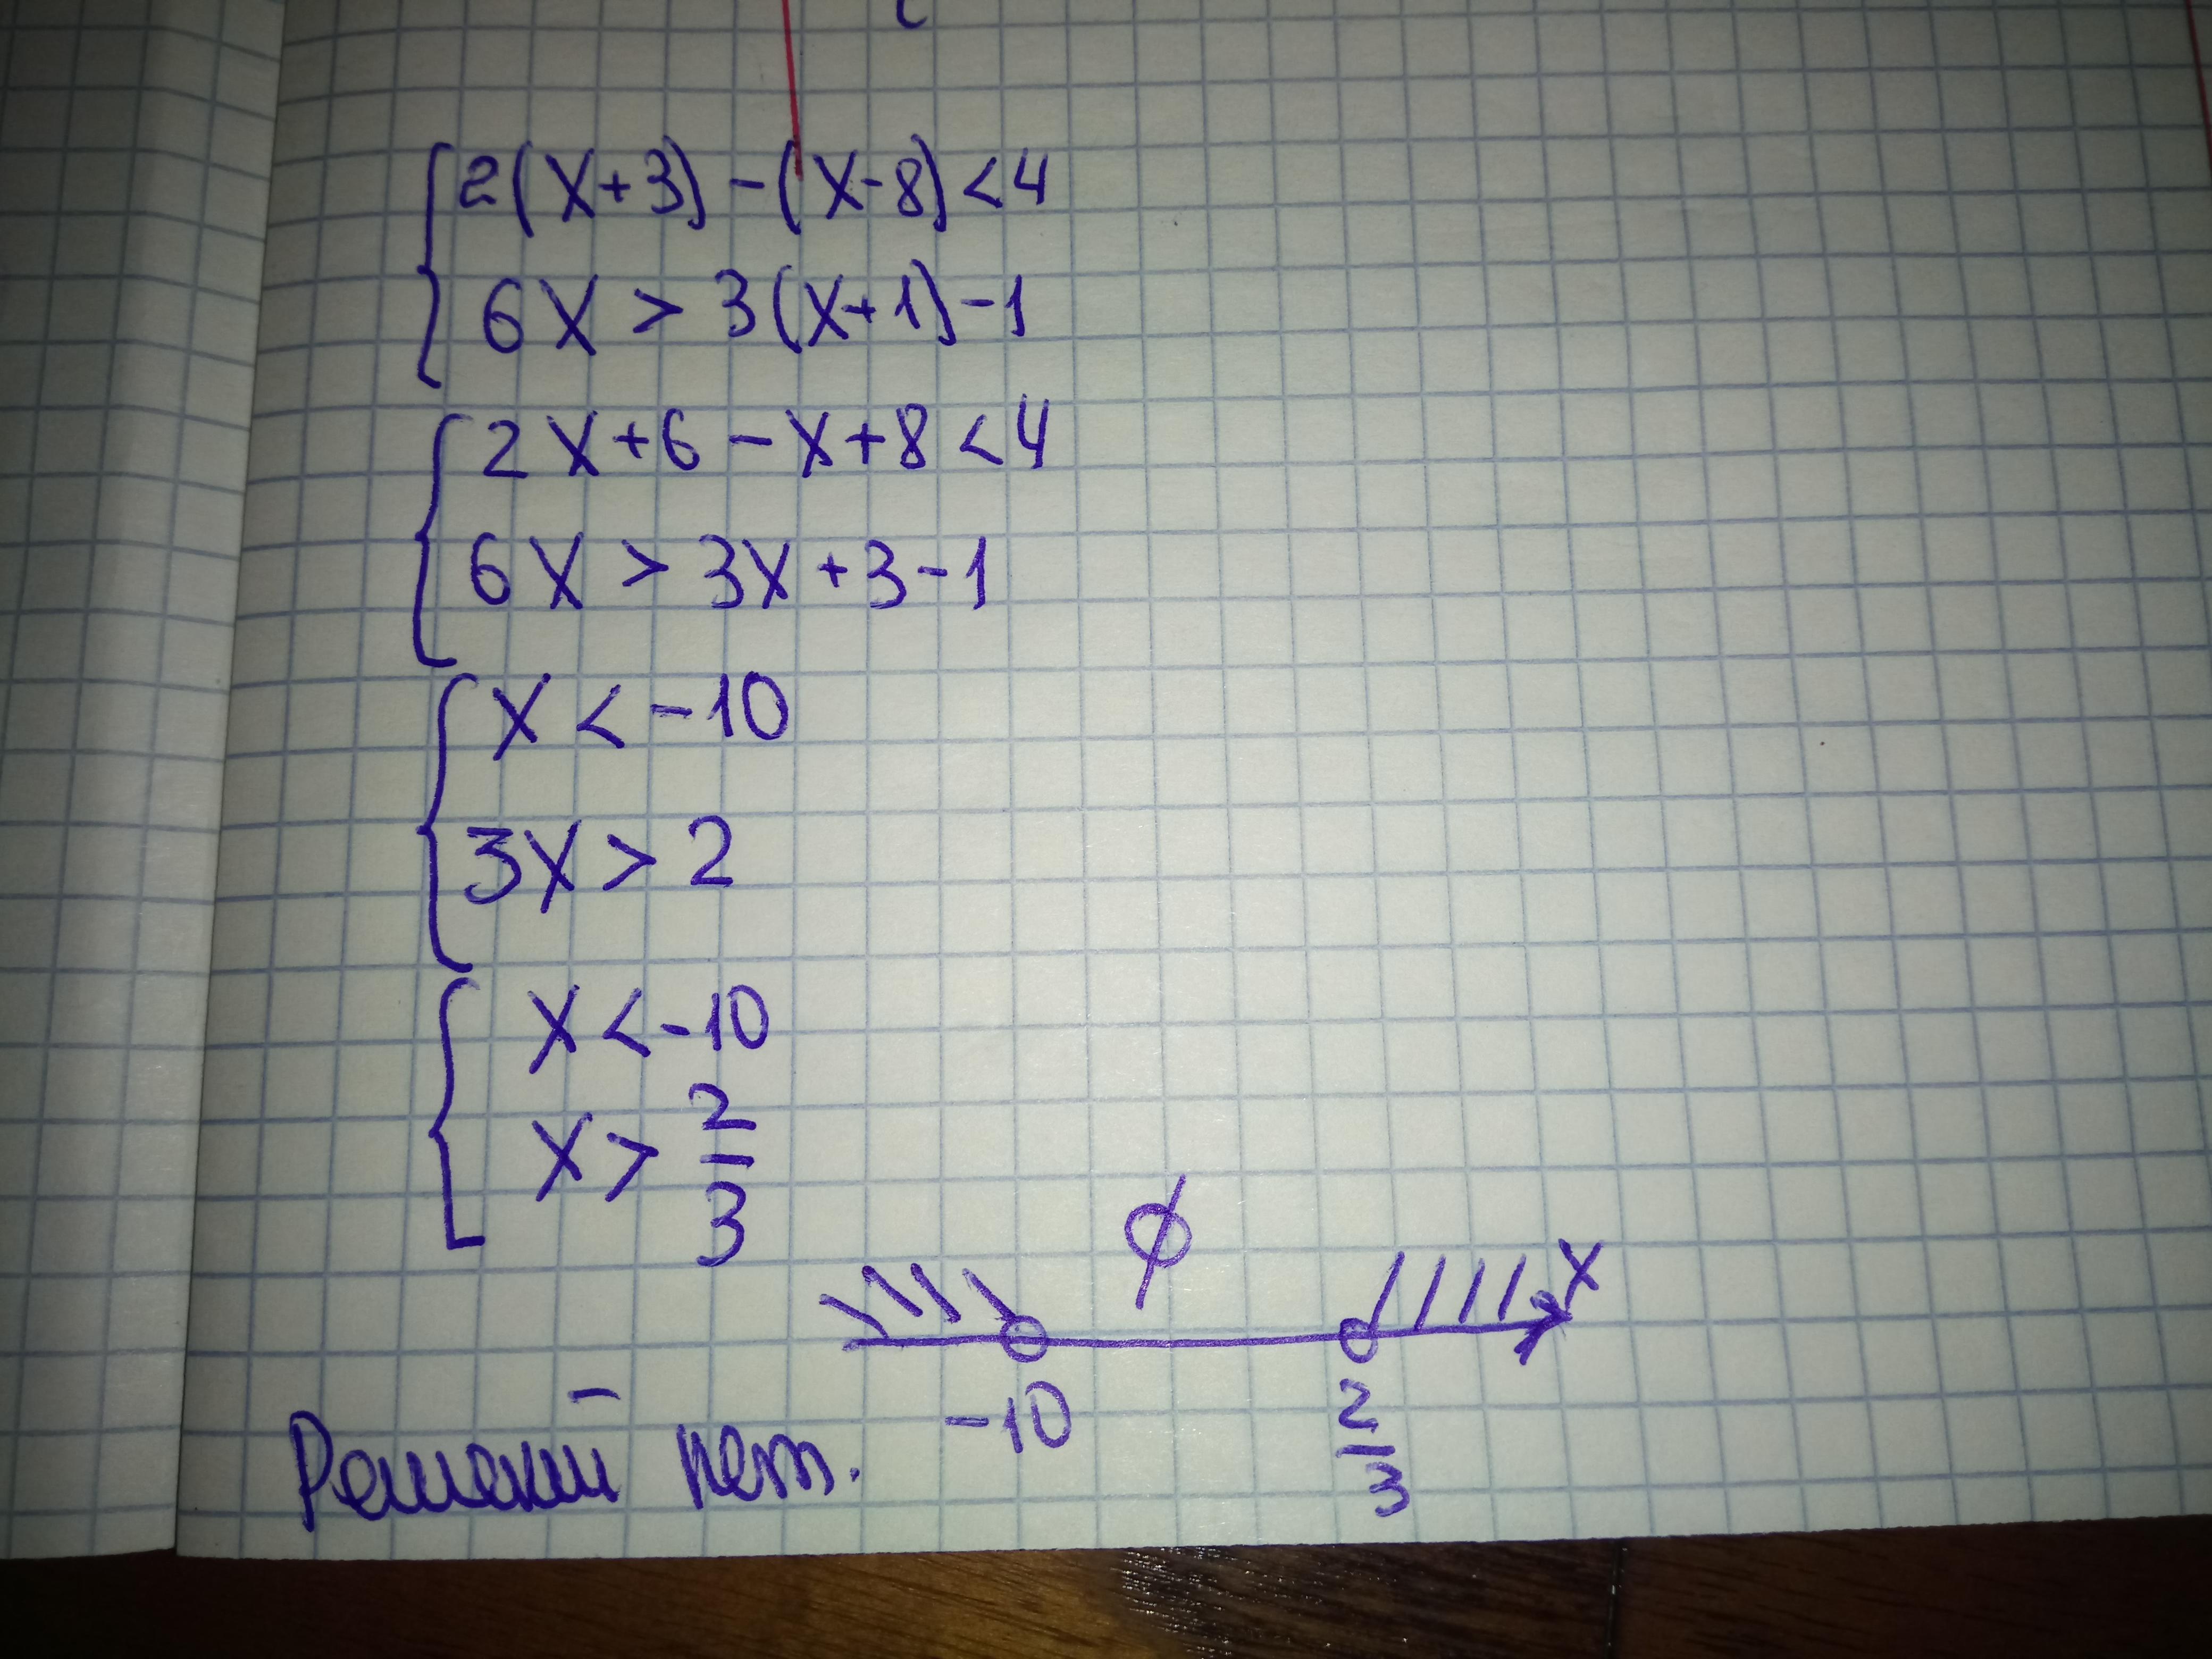 2(x+3)-(x-8)<4
6x > 3(x+1)-1
2x+6-x+8<4
6x > 3x+3-1
x < -10
3x > 2
x < -10
x > 2/3
∅
x
-10 2/3
Решений нет.